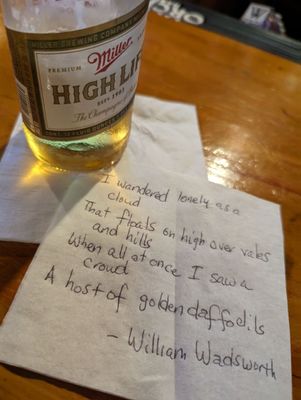 MILLER BREWING COMPANY
PREMIUM
Miller
HIGH LIFE
ESTD 1903
The Champagne of
I wandered lonely as a
cloud
That floats on high over vales
and hills
When all at once I saw a
crowd
A host of golden daffodils
- William Wadsworth